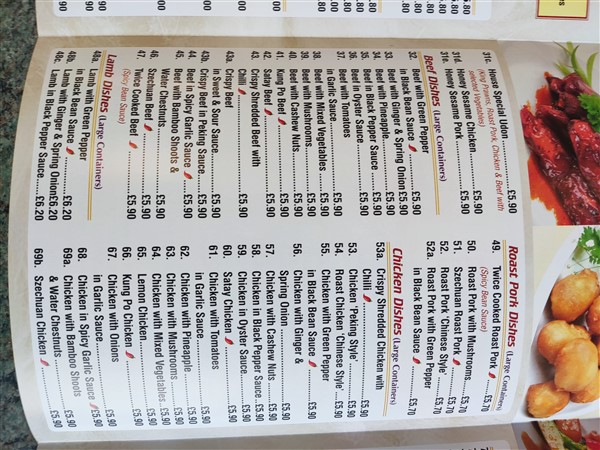 31c. House Special Udon ..... £5.90
(King Prawns, Roast Pork, Chicken & Beef with
selected Vegetables)
31d. Honey Sesame Chicken ..... £5.90
31e. Honey Sesame Pork ..... £5.90
Beef Dishes (Large Containers)
32. Beef with Green Pepper
in Black Bean Sauce ..... £5.90
33. Beef with Ginger & Spring Onion £5.90
34. Beef with Pineapple ..... £5.90
35. Beef in Black Pepper Sauce ..... £5.90
36. Beef in Oyster Sauce ..... £5.90
37. Beef with Tomatoes ..... £5.90
38. Beef with Mixed Vegetables ..... £5.90
39. Beef with Mushrooms ..... £5.90
40. Beef with Cashew Nuts ..... £5.90
41. Kung Po Beef ..... £5.90
42. Satay Beef ..... £5.90
43. Crispy Shredded Beef with
Chilli ..... £5.90
43a. Crispy Beef
in Sweet & Sour Sauce ..... £5.90
43b. Crispy Beef in Peking Sauce ..... £5.90
44. Beef in Spicy Garlic Sauce ..... £5.90
45. Beef with Bamboo Shoots &
Water Chestnuts ..... £5.90
46. Szechuan Beef ..... £5.90
47. Twice Cooked Beef ..... £5.90
(Spicy Bean Sauce)
Lamb Dishes (Large Containers)
48a. Lamb with Green Pepper
in Black Bean Sauce ..... £6.20
48b. Lamb with Ginger & Spring Onion £6.20
48c. Lamb in Black Pepper Sauce ..... £6.20
Roast Pork Dishes (Large Containers)
49. Twice Cooked Roast Pork ..... £5.70
(Spicy Bean Sauce)
50. Roast Pork with Mushrooms ..... £5.70
51. Szechuan Roast Pork ..... £5.70
52. Roast Pork 'Chinese Style' ..... £5.70
52a. Roast Pork with Green Pepper
in Black Bean Sauce ..... £5.70
Chicken Dishes (Large Containers)
53a. Crispy Shredded Chicken with
Chilli ..... £5.90
53. Chicken 'Peking Style' ..... £5.90
54. Roast Chicken 'Chinese Style' ..... £5.90
55. Chicken with Green Pepper
in Black Bean Sauce ..... £5.90
56. Chicken with Ginger &
Spring Onion ..... £5.90
57. Chicken with Cashew Nuts ..... £5.90
58. Chicken in Black Pepper Sauce ..... £5.90
59. Chicken in Oyster Sauce ..... £5.90
60. Satay Chicken ..... £5.90
61. Chicken with Tomatoes
in Garlic Sauce ..... £5.90
62. Chicken with Pineapple ..... £5.90
63. Chicken with Mushrooms ..... £5.90
64. Chicken with Mixed Vegetables ..... £5.90
65. Lemon Chicken ..... £5.90
66. Kung Po Chicken ..... £5.90
67. Chicken with Onions
in Garlic Sauce ..... £5.90
68. Chicken in Spicy Garlic Sauce £5.90
69a. Chicken with Bamboo Shoots
& Water Chestnuts ..... £5.90
69b. Szechuan Chicken ..... £5.90